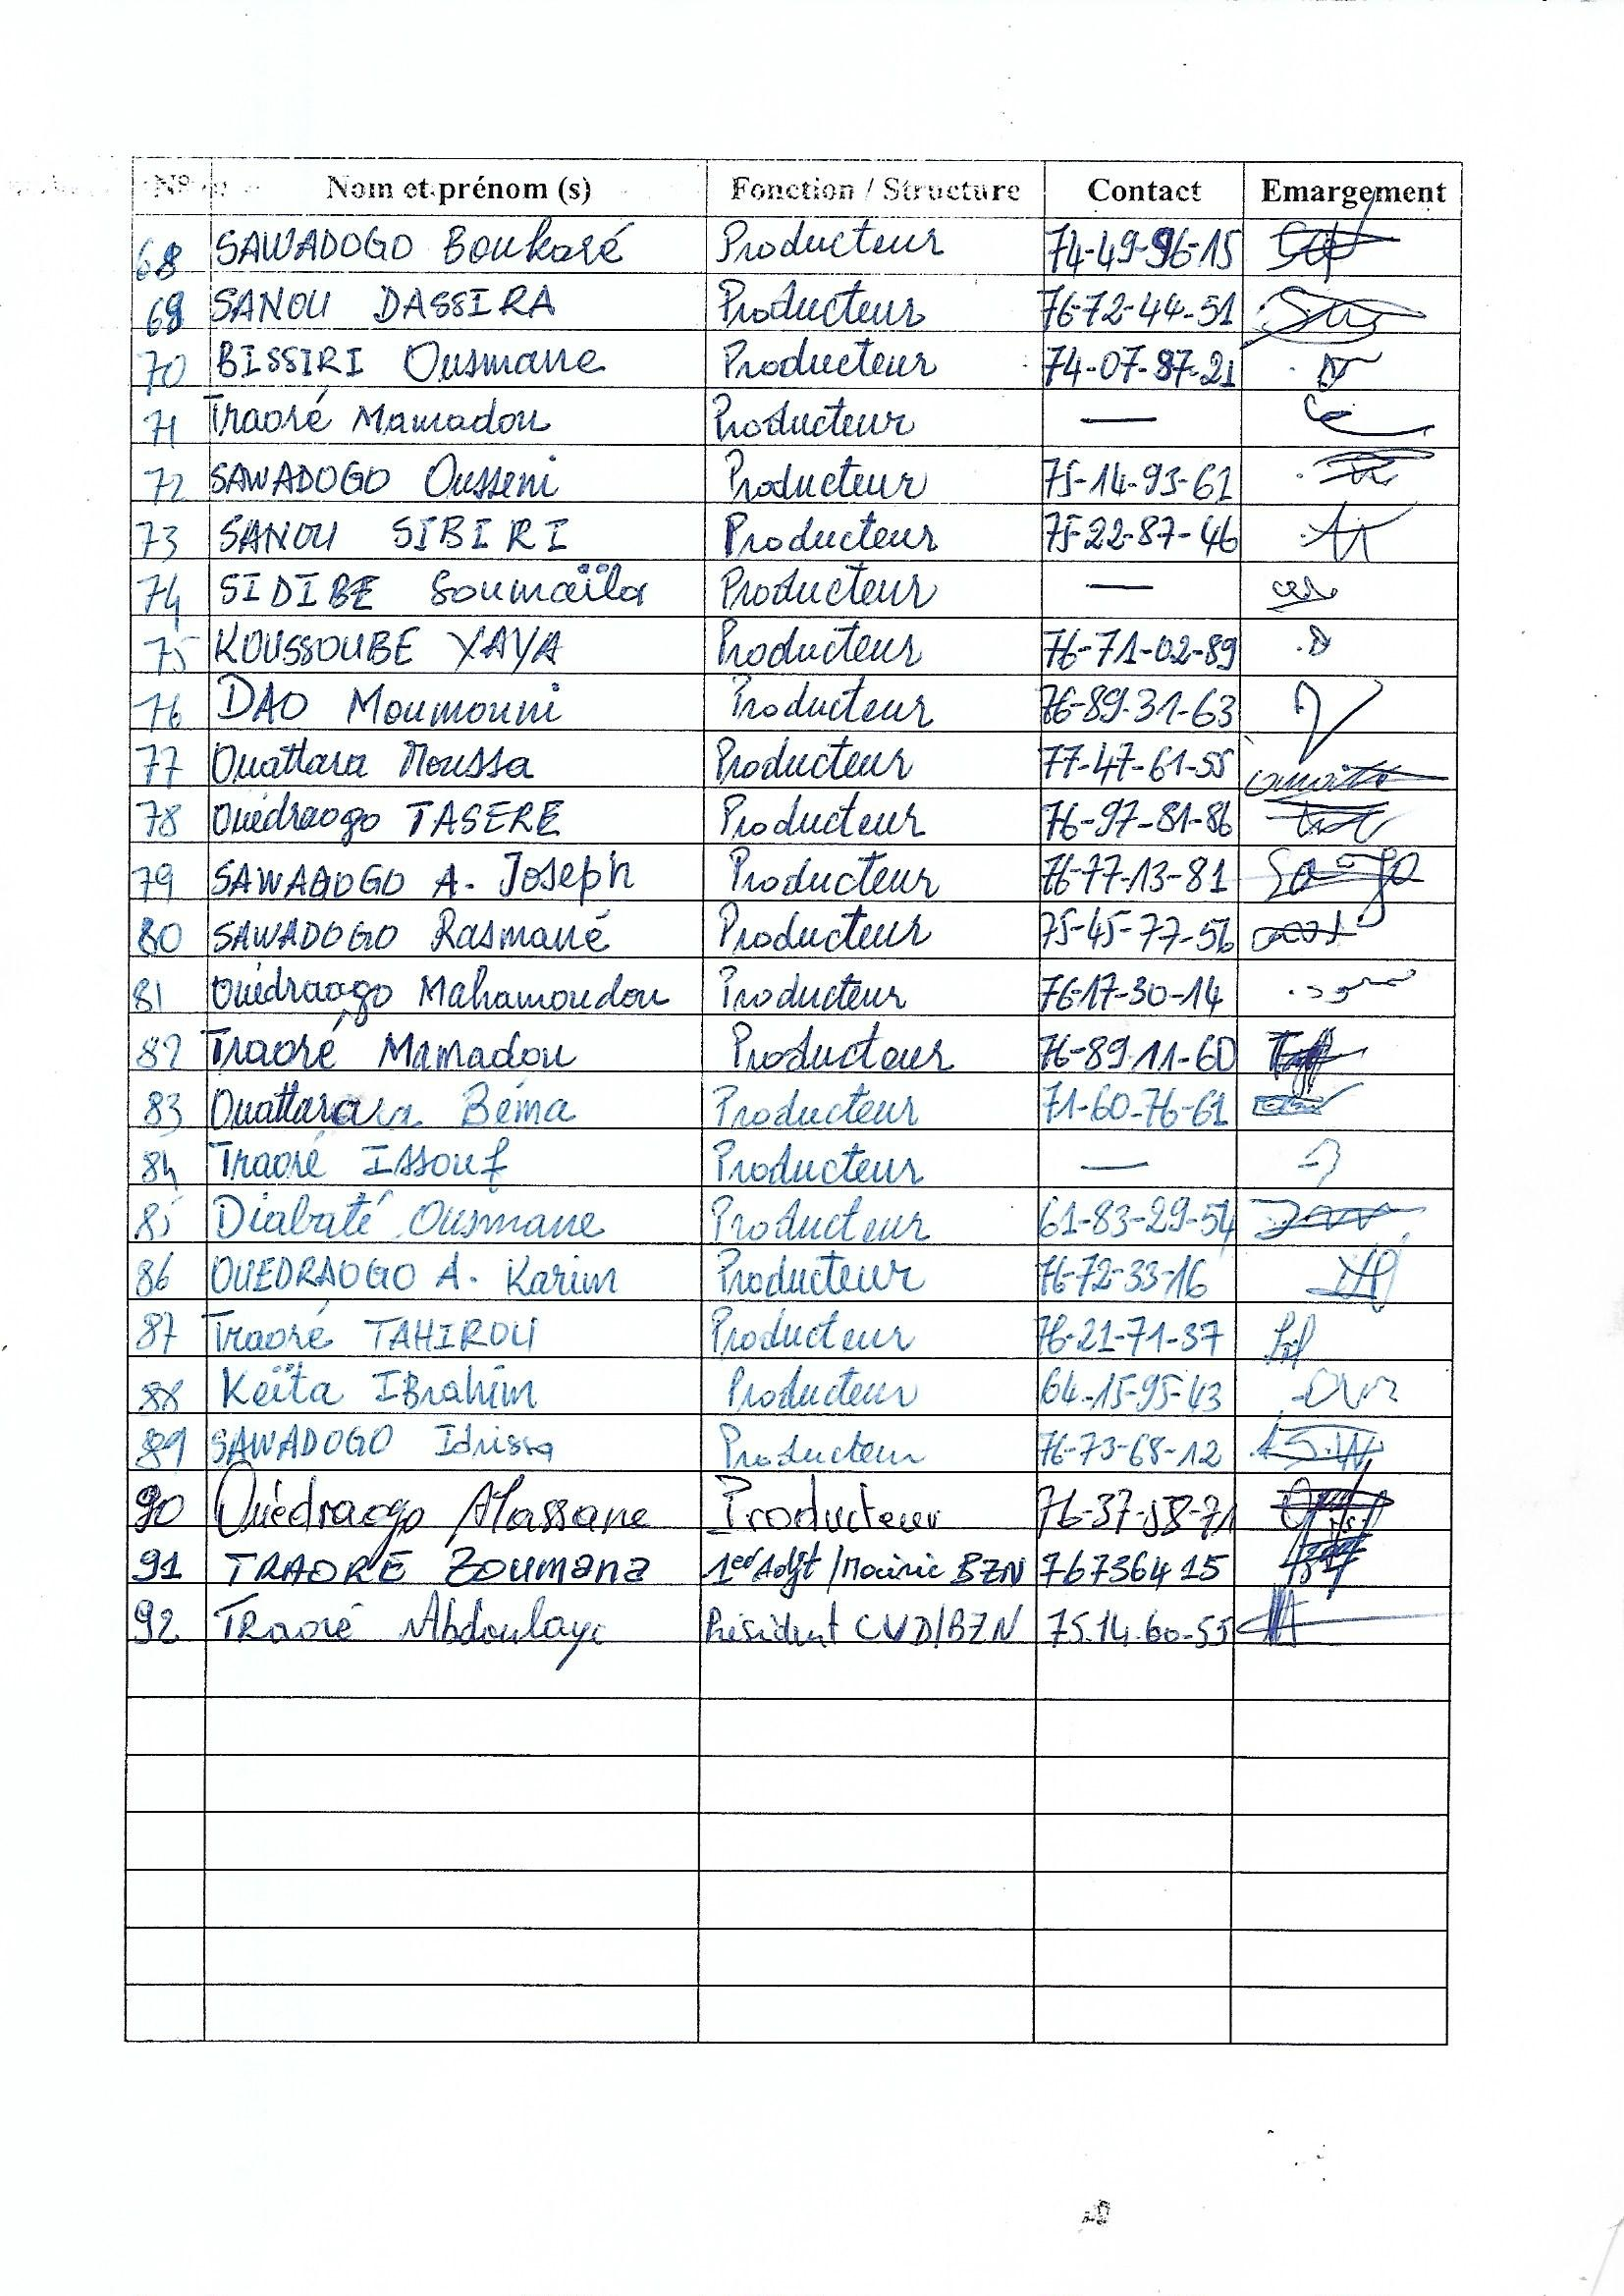 N° Nom et prénom (s) Fonction / Structure Contact Emargement
68 SAWADOGO Boukaré Producteur 74-49-96-15
69 SANOU DASSIRA Producteur 76-72-44-51
70 BISSIRI Ousmane Producteur 74-07-87-21
71 Traoré Mamadou Producteur —
72 SAWADOGO Ousseni Producteur 75-14-93-61
73 SANOU SIBIRI Producteur 75-22-87-46
74 SIDIBE Soumaïla Producteur —
75 KOUSSOUBE YAYA Producteur 76-71-02-89
76 DAO Moumouni Producteur 76-89-31-63
77 Ouattara Moussa Producteur 77-47-61-55
78 Ouédraogo TASERE Producteur 76-97-81-86
79 SAWADOGO A. Joseph Producteur 76-77-13-81
80 SAWADOGO Rasmané Producteur 75-45-77-56
81 Ouédraogo Mahamoudou Producteur 76-17-30-14
82 Traoré Mamadou Producteur 76-89-11-60
83 Ouattara Béma Producteur 71-60-76-61
84 Traoré ISSouf Producteur —
85 Diabaté Ousmane Producteur 61-83-29-54
86 OUEDRAOGO A. Karim Producteur 76-72-33-16
87 Traoré TAHIROU Producteur 76-21-71-37
88 Keïta IBrahim Producteur 64-15-95-43
89 SAWADOGO Idrissa Producteur 76-73-68-12
90 Ouédraogo Alassane Producteur 76-37-58-71
91 TRAORE Zoumana 1er Adjt / Mairie BZN 76736415
92 Traoré Abdoulaye Président CVD/BZN 75.14.60-55